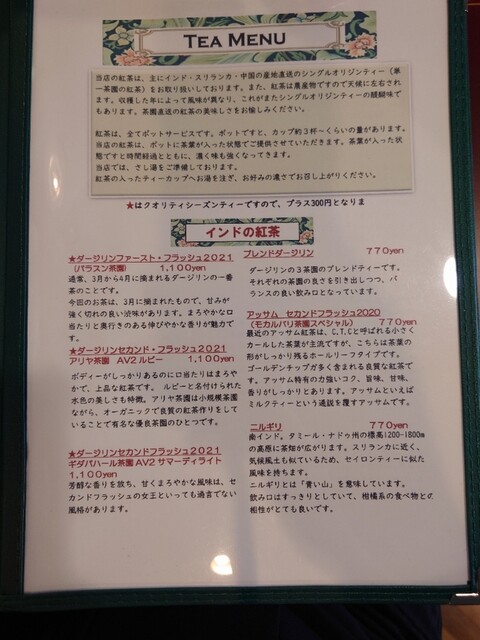 TEA MENU
当店の紅茶は、主にインド・スリランカ・中国の産地直送のシングルオリジンティー(単
一茶園の紅茶)をお取り扱いしております。また、紅茶は農産物ですので天候に左右され
ます。収穫した年によって風味が異なり、これがまたシングルオリジンティーの醍醐味で
もあります。茶園直送の紅茶の美味しさをお愉しみください。
紅茶は、全てポットサービスです。ポットですと、カップ約3杯~くらいの量があります。
当店の紅茶は、ポットに茶葉が入った状態でご提供させていただきます。茶葉が入った状
態ですと時間経過とともに、濃く味も強くなってきます。
当店では、さし湯をご準備しております。
紅茶の入ったティーカップへお湯を注ぎ、お好みの濃さでお召し上がりください。
★はクオリティシーズンティーですので、プラス300円となりま
インドの紅茶
★ダージリンファースト・フラッシュ2021
(バラスン茶園) 1,100yen
通常、3月から4月に摘まれるダージリンの一番
茶のことです。
今回のお茶は、3月に摘まれたもので、甘みが
強く切れの良い渋味があります。まろやかな口
当たりと奥行きのある伸びやかな香りが魅力で
す。
★ダージリンセカンド・フラッシュ2021
アリヤ茶園 AV2 ルビー 1,100yen
ボディーがしっかりあるのに口当たりはまろや
かで、上品な紅茶です。 ルビーと名付けられた
水色の美しさも特徴。アリヤ茶園は小規模茶園
ながら、オーガニックで良質の紅茶作りをして
いることで有名な優良茶園のひとつです。
★ダージリンセカンド・フラッシュ2021
ギダパハール茶園 AV2 サマーディライト
1,100yen
芳醇な香りを放ち、甘くまろやかな風味は、セ
カンドフラッシュの女王といっても過言でない
風格があります。
ブレンドダージリン 770yen
ダージリンの3茶園のブレンドティーです。
それぞれの茶園の良さを引き出しつつ、バ
ランスの良い飲み口となっています。
アッサム セカンドフラッシュ2020
(モカルバリ茶園スペシャル) 770yen
最近のアッサム紅茶は、C,T,Cと呼ばれる小さく
カールした茶葉が主流ですが、こちらは茶葉の
形がしっかり残るホールリーフタイプです。
ゴールデンチップが多く含まれる良質な紅茶で
す。アッサム特有の力強いコク、旨味、甘味、
香りがしっかりとあります。アッサムといえば
ミルクティーという通説を覆すアッサムです。
ニルギリ 770yen
南インド。タミール・ナドゥ州の標高1200-1800m
の高原に茶畑が広がります。スリランカに近く、
気候風土も似ているため、セイロンティーに似た
風味を持ちます。
ニルギリとは「青い山」を意味しています。
飲み口はすっきりとしていて、柑橘系の食べ物との
相性がとても良いです。